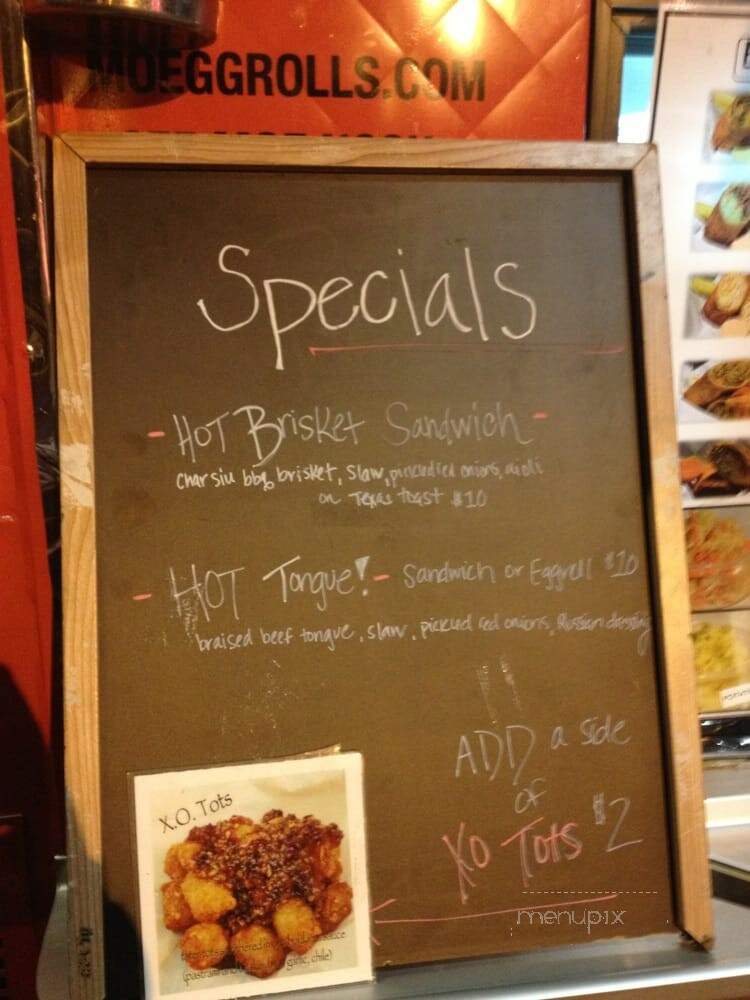 MOEGGROLLS.COM
Specials
- HOT Brisket Sandwich -
char siu bbq brisket, slaw, pickled red onions, aioli
on Texas toast $10
- HOT Tongue! - Sandwich or Eggroll $10
braised beef tongue, slaw, pickled red onions, Russian dressing
ADD a side
of
XO Tots $2
X.O. Tots
menupix